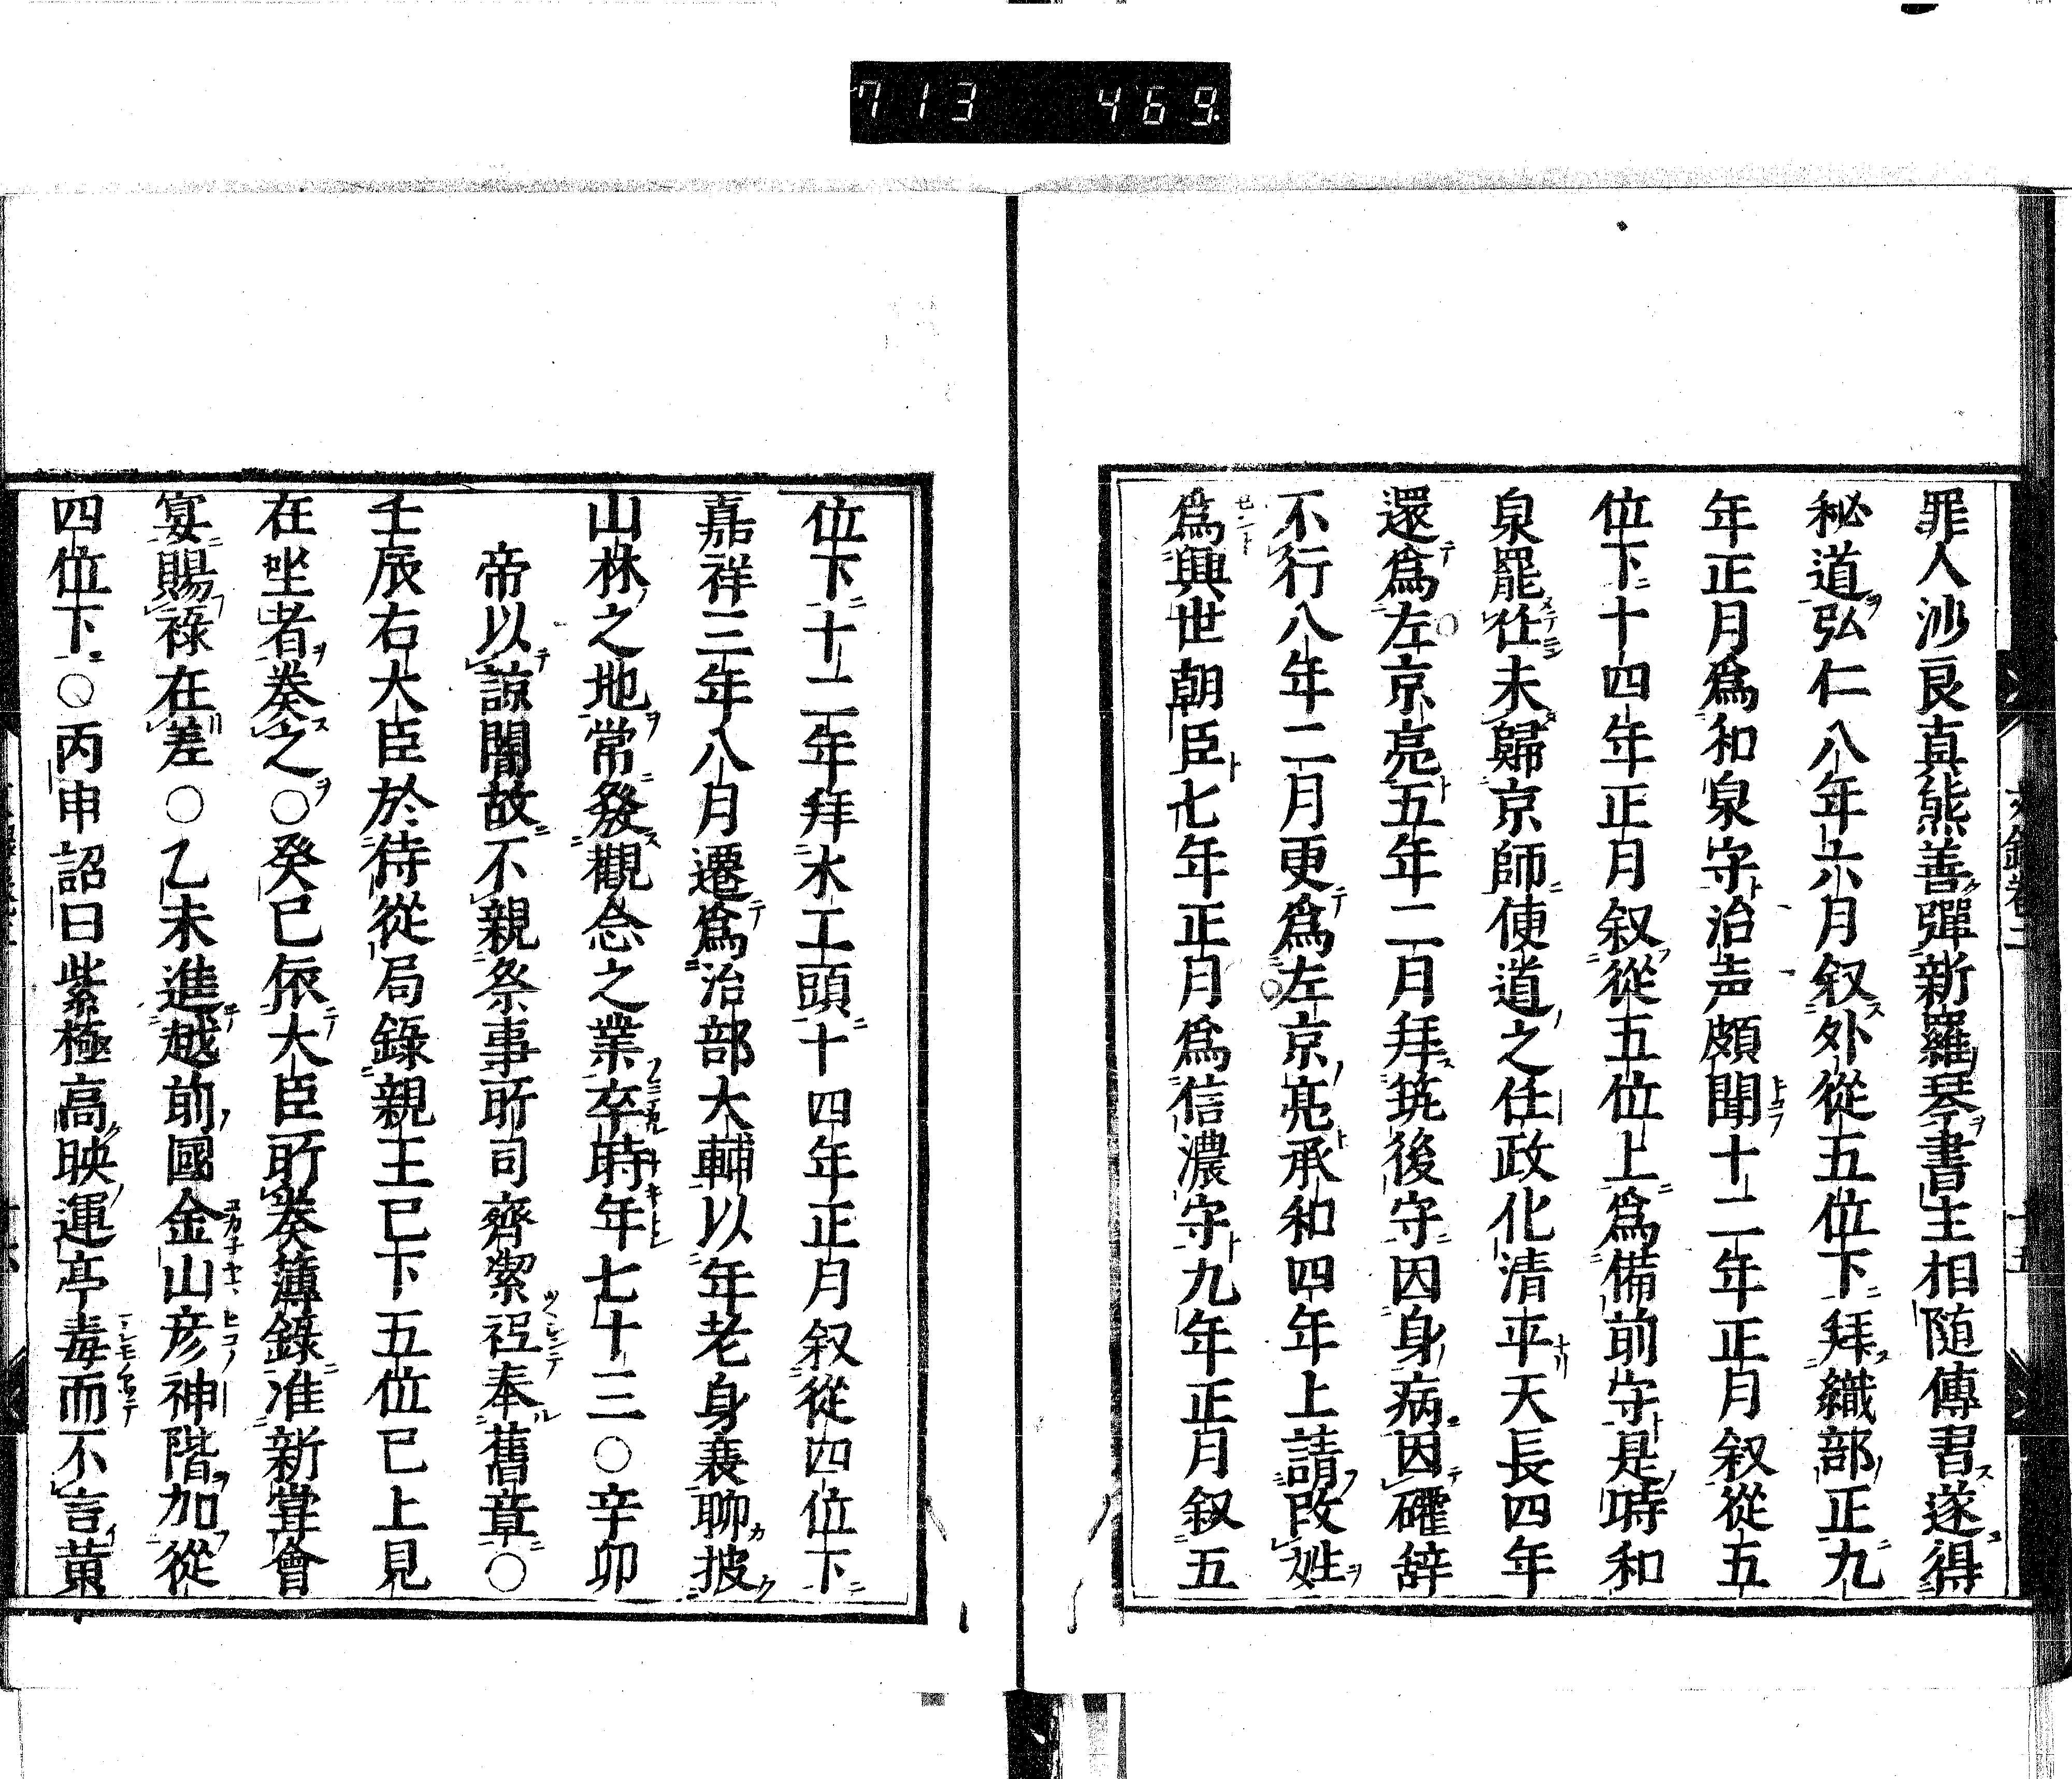 713 469
罪人沙良真熊善彈新羅琴書主相随傳習遂得
秘道弘仁八年六月叙外從五位下拜織部正九
年正月爲和泉守治声頗聞十二年正月叙從五
位下十四年正月叙從五位上爲備前守是時和
泉罷任未歸京師使道之任政化清平天長四年
還爲左京亮五年二月拜筑後守因身病因確辞
不行八年二月更爲左京亮承和四年上請改姓
爲興世朝臣七年正月爲信濃守九年正月叙五
位下十二年拜木工頭十四年正月叙從四位下
嘉祥三年八月遷爲治部大輔以年老身衰聊披
山林之地常發觀念之業卒時年七十三○辛卯
帝以諒闇故不親祭事所司齊潔祗奉舊章○
壬辰右大臣於侍從局錄親王已下五位已上見
在坐者奏之○癸巳依大臣所奏簿錄准新甞會
宴賜祿在差○乙未進越前國金山彦神階加從
四位下○丙申詔曰紫極高映運亭毒而不言黄